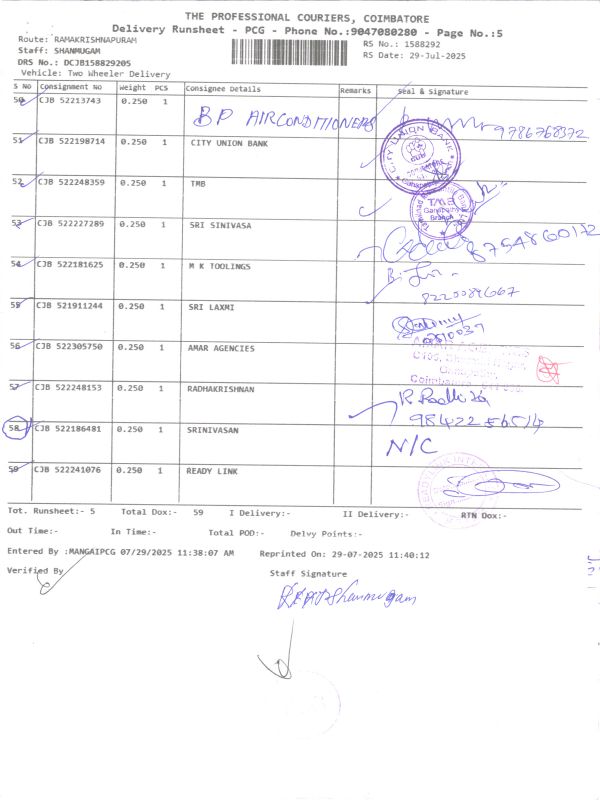 THE PROFESSIONAL COURIERS, COIMBATORE
Delivery Runsheet - PCG - Phone No.:9047080280 - Page No.:5
Route: RAMAKRISHNAPURAM
RS No.: 1588292
Staff: SHANMUGAM
RS Date: 29-Jul-2025
DRS No.: DCJB158829205
Vehicle: Two Wheeler Delivery
S No Consignment No Weight PCS Consignee Details Remarks Seal & Signature
50 CJB 52213743 0.250 1 BP AIRCONDITIONERS 9786768372
51 CJB 522198714 0.250 1 CITY UNION BANK CITY UNION BANK
52 CJB 522248359 0.250 1 TMB TMB
Branch
53 CJB 522227289 0.250 1 SRI SINIVASA 8754860172
54 CJB 522181625 0.250 1 M K TOOLINGS
8220084667
55 CJB 521911244 0.250 1 SRI LAXMI
56 CJB 522305750 0.250 1 AMAR AGENCIES
Coimbatore
57 CJB 522248153 0.250 1 RADHAKRISHNAN R
58 CJB 522186481 0.250 1 SRINIVASAN N/C
59 CJB 522241076 0.250 1 READY LINK
Tot. Runsheet:- 5 Total Dox:- 59 I Delivery:- II Delivery:- RTN Dox:-
Out Time:- In Time:- Total POD:- Delvy Points:-
Entered By :MANGAIPCG 07/29/2025 11:38:07 AM Reprinted On: 29-07-2025 11:40:12
Verified By
Staff Signature
Shanmugam